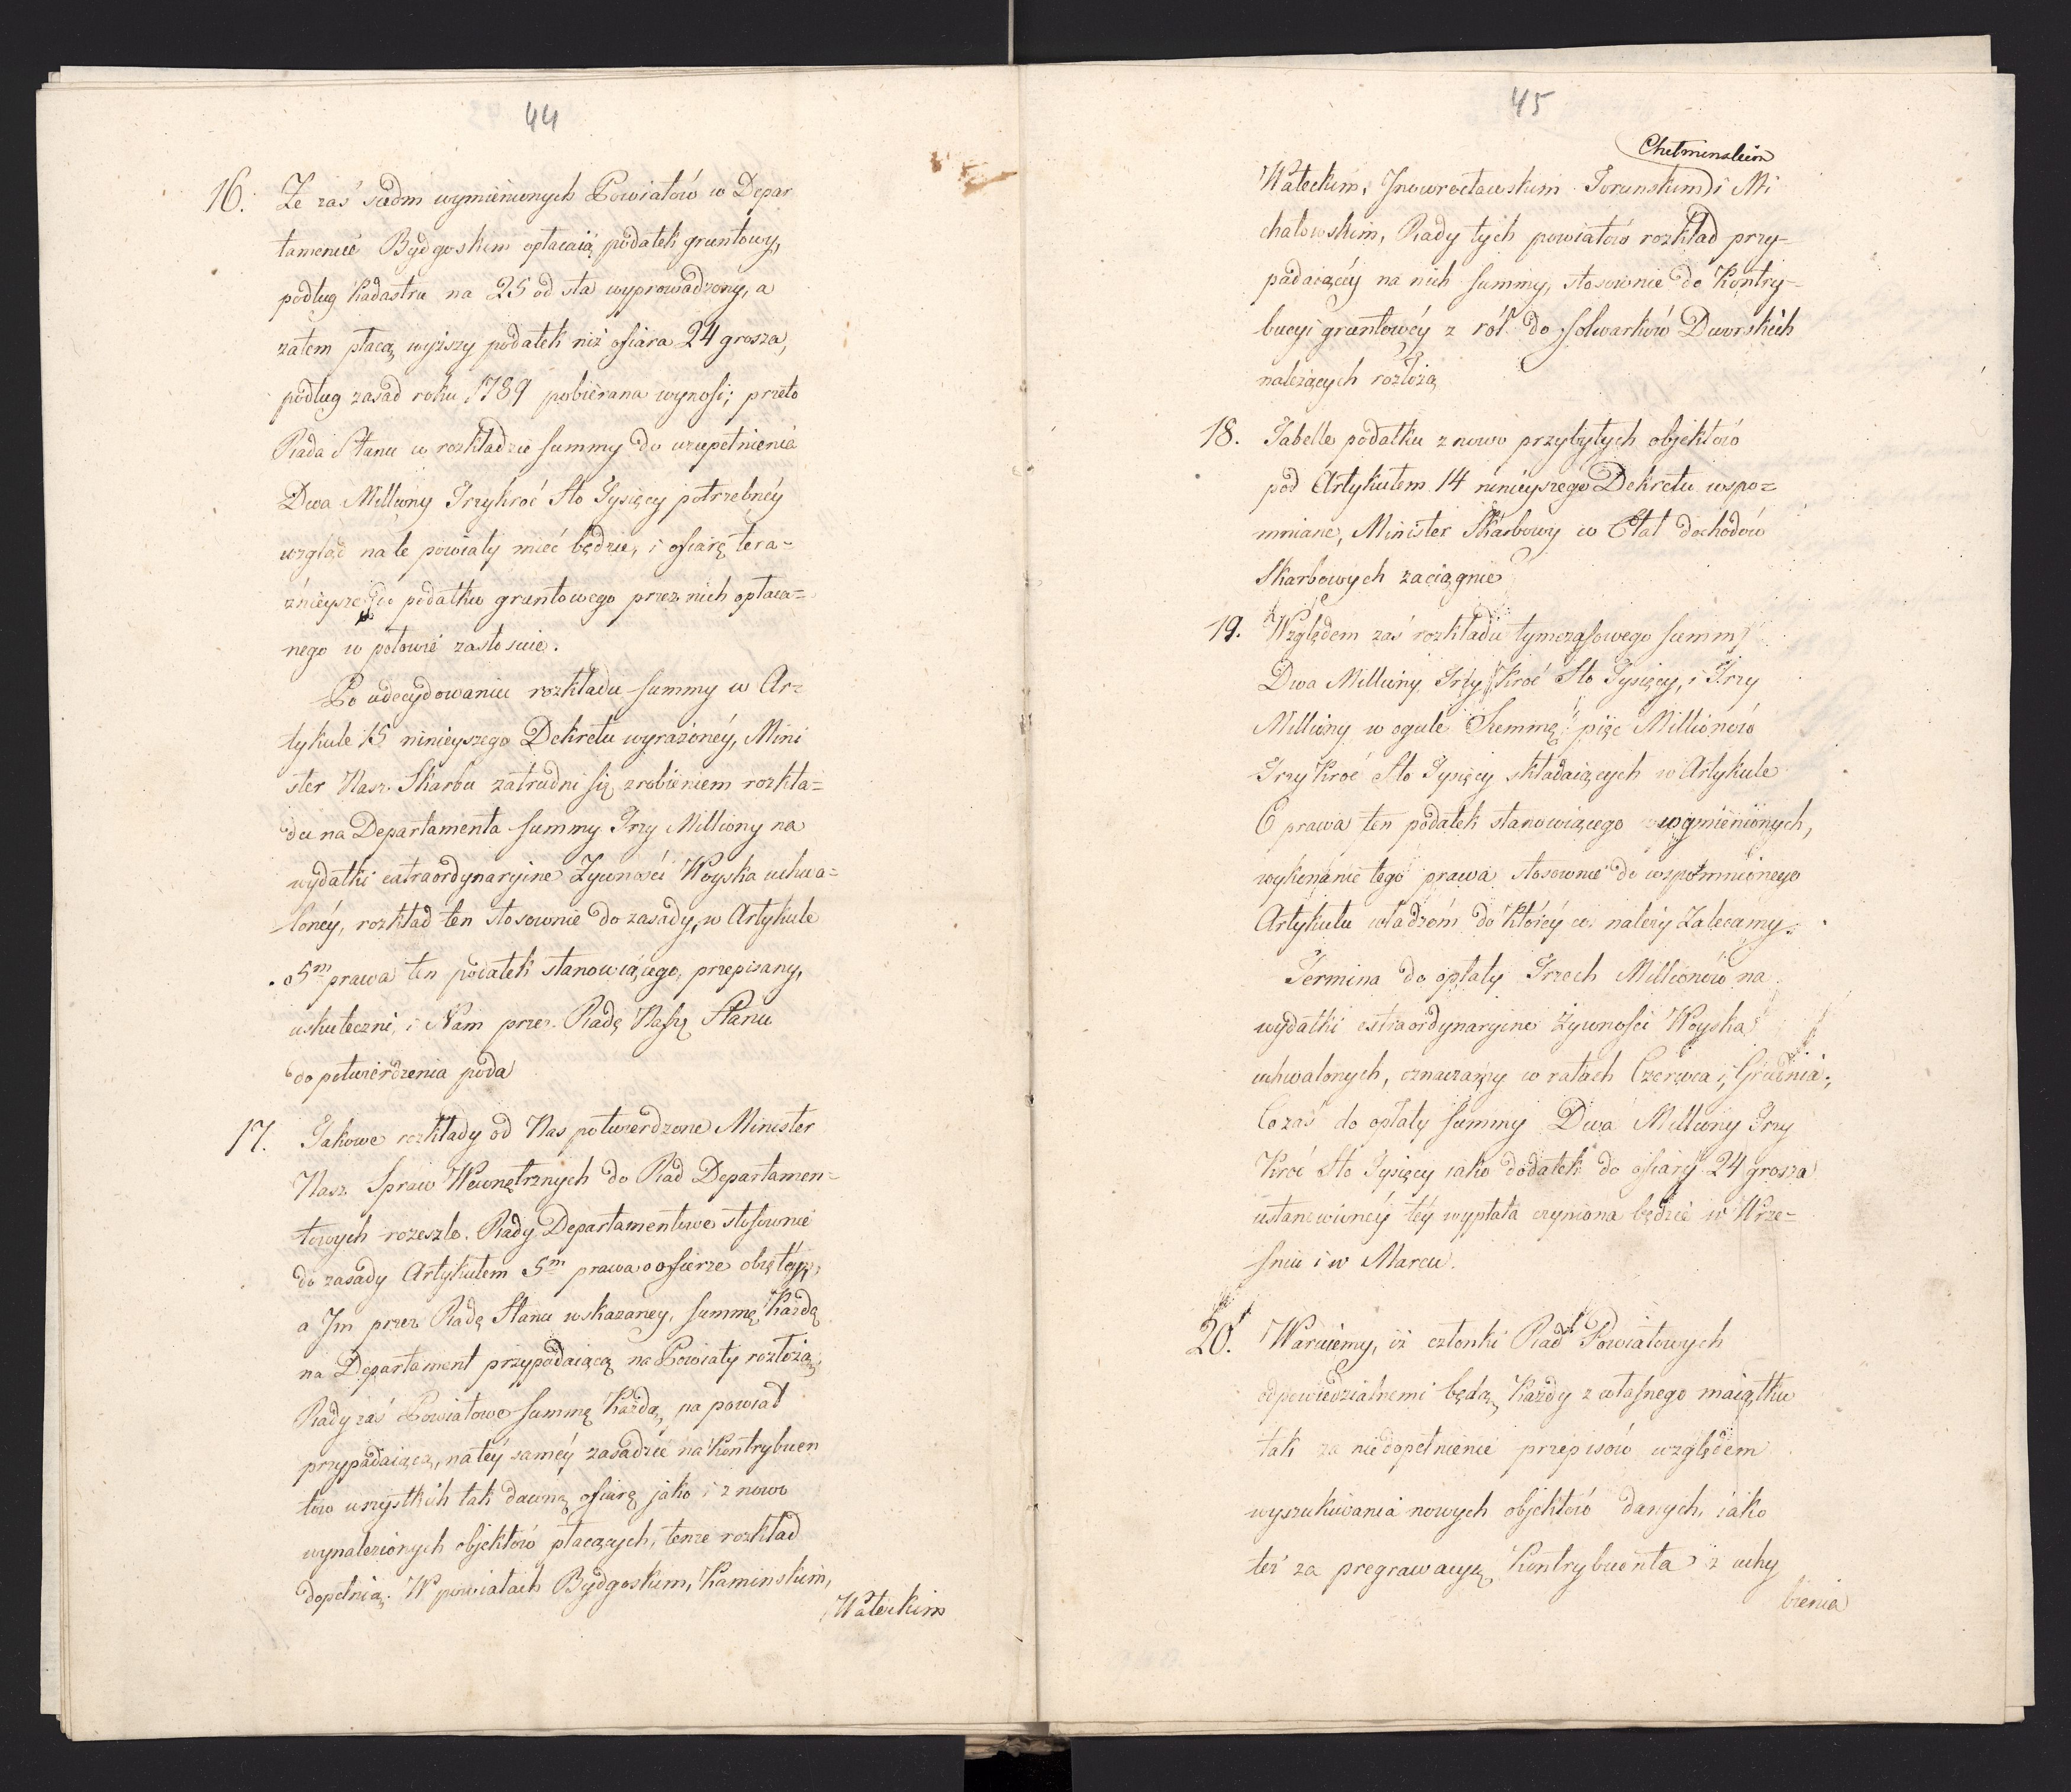 44
16. Ze zaś siedm wymienionych Powiatów w Depar
tamencie Bydgoskim opłacaią podatek gruntowy,
podług kadastru na 25 od sta wyprowadzony, a
zatem płacą wyższy podatek niż ofiara 24 grosza,
podług zasad roku 1789 pobierana wynosi; przeto
Rada Stanu w rozkładzie summy do uzupełnienia
Dwa Milliony Trzykroć Sto Tysięcy potrzebnéy
wzgląd na te powiaty mieć będzie, i ofiarę tera=
źnieyszą do podatku gruntowego przez nich opłaca=
nego w połowie zastosuie.
Po udecydowaniu rozkładu summy w Ar=
tykule 15 ninieyszego Dekretu wyrażonéy, Mini
ster Nasz Skarbu zatrudni się zrobieniem rozkła=
du na Departamenta summy Trzy Milliony na
wydatki extraordynaryine Żywności Woyska uchwa=
lonéy, rozkład ten stosownie do zasady, w Artykule
5m prawa ten podatek stanowiącego, przepisany,
uskuteczni, i Nam przez Radę Naszą Stanu
do potwierdzenia poda
17. Takowe rozkłady od Nas potwierdzone Minister
Nasz Spraw Wewnętrznych do Rad Departamen=
towych rozeszle. Rady Departamentowe stosownie
do zasady Artykułem 5m prawa o ofierze obiętéy,
a Im przez Radę Stanu wskazaney, summę każdą
na Departament przypadaiącą na Powiaty rozłożą,
Rady zaś Powiatowe summę każdą, na powiat
przypadaiącą, na téy saméy zasadzie na kontrybuen
tów wszystkich tak dawną ofiarę jako i z nowo
wynalezionych objektów płacących, tenże rozkład
dopełnią. W powiatach Bydgoskim, Kaminskim,
Wałeckim
45
Chełminskim
Wałeckim, Inowrocławskim Torunskim i Mi
chałowskim, Rady tych powiatów rozkład przy=
padaiącéy na nich summy, stosownie do Kontry=
bucyi gruntowéy z ról do folwarków Dworskich
należących rozłożą
18. Tabelle podatku z nowo przybyłych objektów
pod Artykułem 14 ninieyszego Dekretu wspo=
mniane, Minister Skarbowy w Etat dochodów
Skarbowych zaciągnie
19. Względem zaś rozkładu tymczasowego summ
Dwa Milliony Trzy kroć Sto Tysięcy, i Trzy
Milliony w ogule Summę pięć Millionów
Trzy kroć Sto Tysięcy składaiących w Artykule
6 prawa ten podatek stanowiącego wymienionych,
wykonanie tego prawa stosownie do wspomnionego
Artykułu władzom do któréy co należy zalecamy.
Termina do opłaty Trzech Millionów na
wydatki extraordynaryine żywności Woyska
uchwalonych, oznaczamy w ratach Czerwca i Grudnia;
Co zaś do opłaty summy Dwa Milliony Trzy
kroć Sto Tysięcy iako dodatek do ofiary 24 grosza
ustanowionéy téy wypłata czyniona będzie w Wrze=
śniu i w Marcu.
20. Waruiemy, iż członki Rad Powiatowych
odpowiedzialnemi będą, każdy z własnego maiątku
tak za niedopełnienie przepisów względem
wyszukiwania nowych objektów danych, iako
też za pregrawacyą kontrybuenta z uchy
bienia